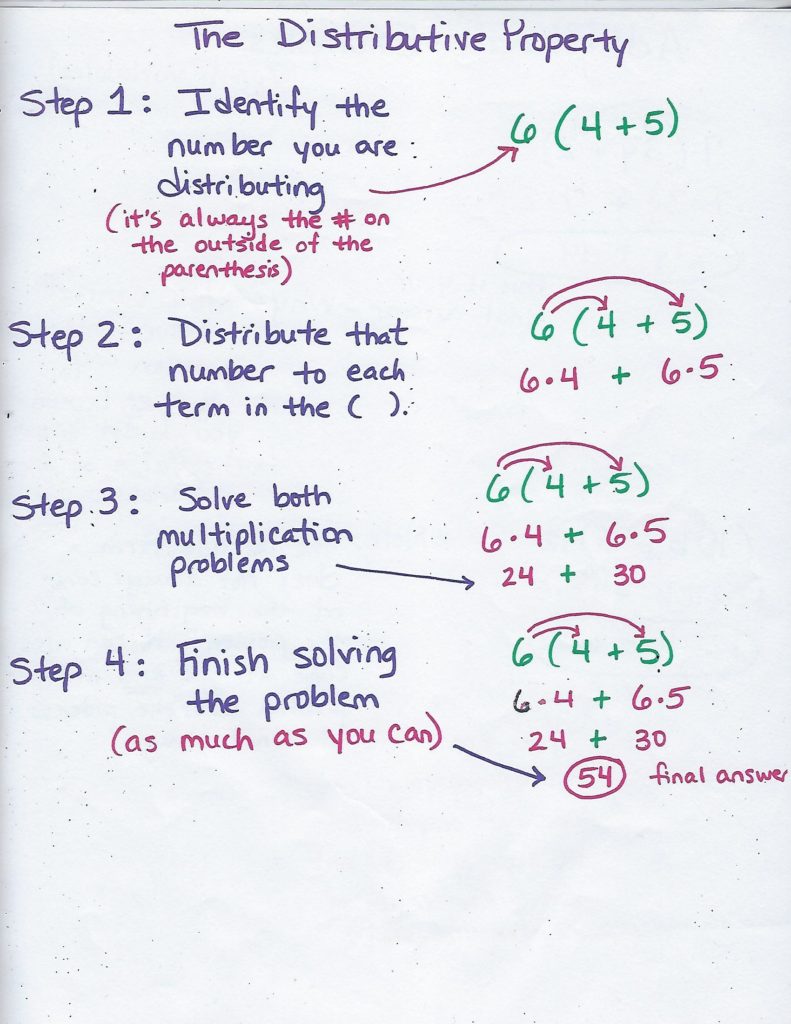 The Distributive Property
Step 1: Identify the
number you are:
distributing
(it's always the # on
the outside of the
parenthesis)
6 (4 + 5)
Step 2: Distribute that
number to each
term in the ( ).
6 (4 + 5)
6·4 + 6·5
Step 3: Solve both
multiplication
problems
6 (4 + 5)
6·4 + 6·5
24 + 30
Step 4: Finish solving
the problem
(as much as you can)
6 (4 + 5)
6·4 + 6·5
24 + 30
54 final answer